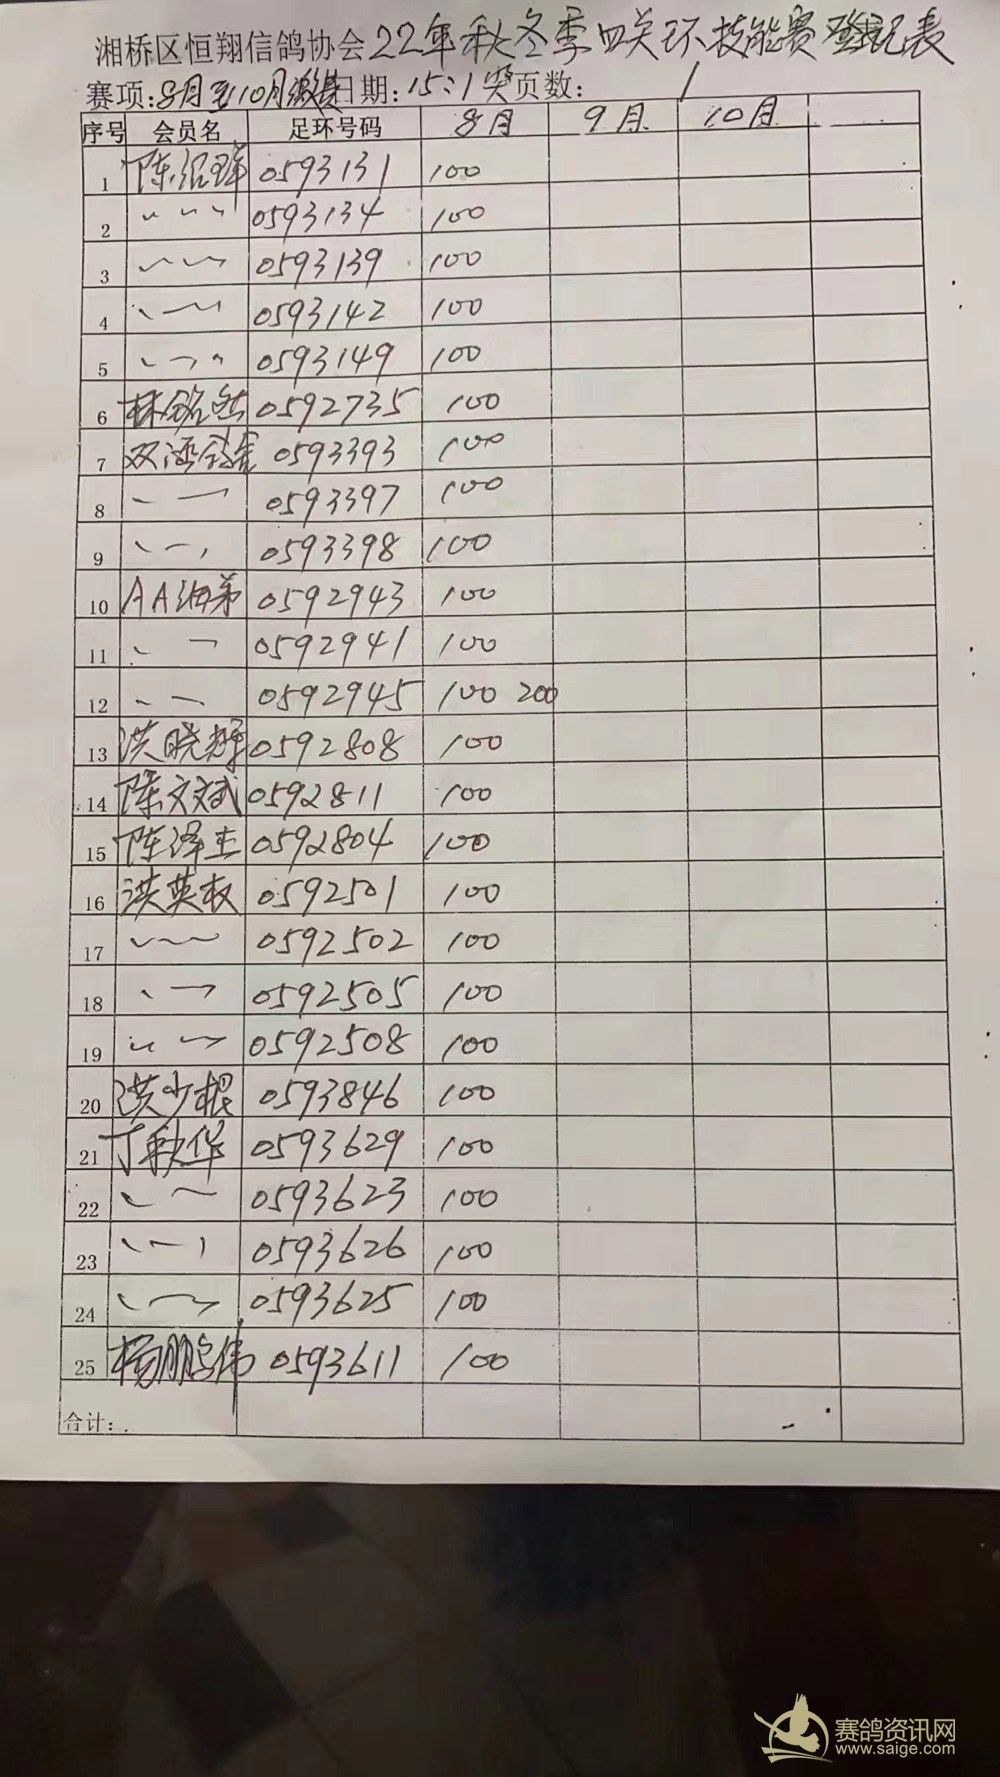 湘桥区恒翔信鸽协会22年秋冬季四关环技能赛登记表
赛项:8月至10月缴费日期:15:1奖页数:1
序号 会员名 足环号码 8月 9月 10月
1 陈绍辉 0593131 100
2 〃 〃 〃 0593134 100
3 0593139 100
4 0593142 100
5 0593149 100
6 林铭 0592735 100
7 双涵鸽舍 0593393 100
8 0593397 100
9 0593398 100
10 AA海弟 0592943 100
11 0592941 100
12 0592945 100 200
13 洪晓辉 0592808 100
14 陈文斌 0592811 100
15 陈泽主 0592804 100
16 洪英权 0592501 100
17 0592502 100
18 0592505 100
19 0592508 100
20 洪少棍 0593846 100
21 丁秋华 0593629 100
22 0593623 100
23 0593626 100
24 0593625 100
25 杨鹏伟 0593611 100
合计:
赛鸽资讯网
www.saige.com